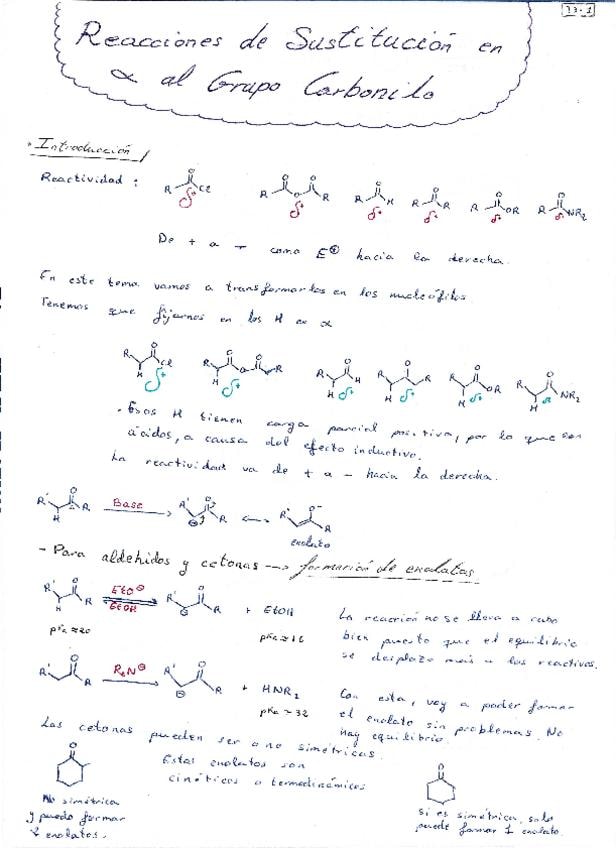 13-1
Reacciones de Sustitución en
α al Grupo Carbonilo
• Introducción
Reactividad:
R O Cl δ+ R O O O R δ+ R O H δ+ R O R δ+ R O OR δ+ R O NR2 δ+
De + a - como E⊕ hacia la derecha.
En este tema vamos a transformarlos en los nucleófilos
Tenemos que fijarnos en los H en α
R O Cl H δ+ R O O O R H δ+ R O H H δ+ R O R H δ+ R O OR H δ+ R O NR2 H δ+
• Esos H tienen carga parcial positiva, por lo que son
ácidos, a causa del efecto inductivo.
La reactividad va de + a - hacia la derecha.
R' O R H Base R' O R ⊖ R' O- R
enolato
- Para aldehidos y cetonas --> formación de enolatos
R' O R H EtO⊖ EtOH R' O R ⊖ + EtOH
pKa ≈ 20 pKa ≈ 16
La reacción no se lleva a cabo
bien puesto que el equilibrio
se desplaza mas a los reactivos.
R' O R R2N⊖ R' O R ⊖ + HNR2
pKa ~ 32
Con esta, voy a poder formar
el enolato sin problemas. No
hay equilibrio.
Las cetonas pueden ser o no simétricas.
Estos enolatos son
cinéticos o termodinámicos
O
No simétrica
y puedo formar
2 enolatos.
O
Si es simétrica, solo
puede formar 1 enolato.